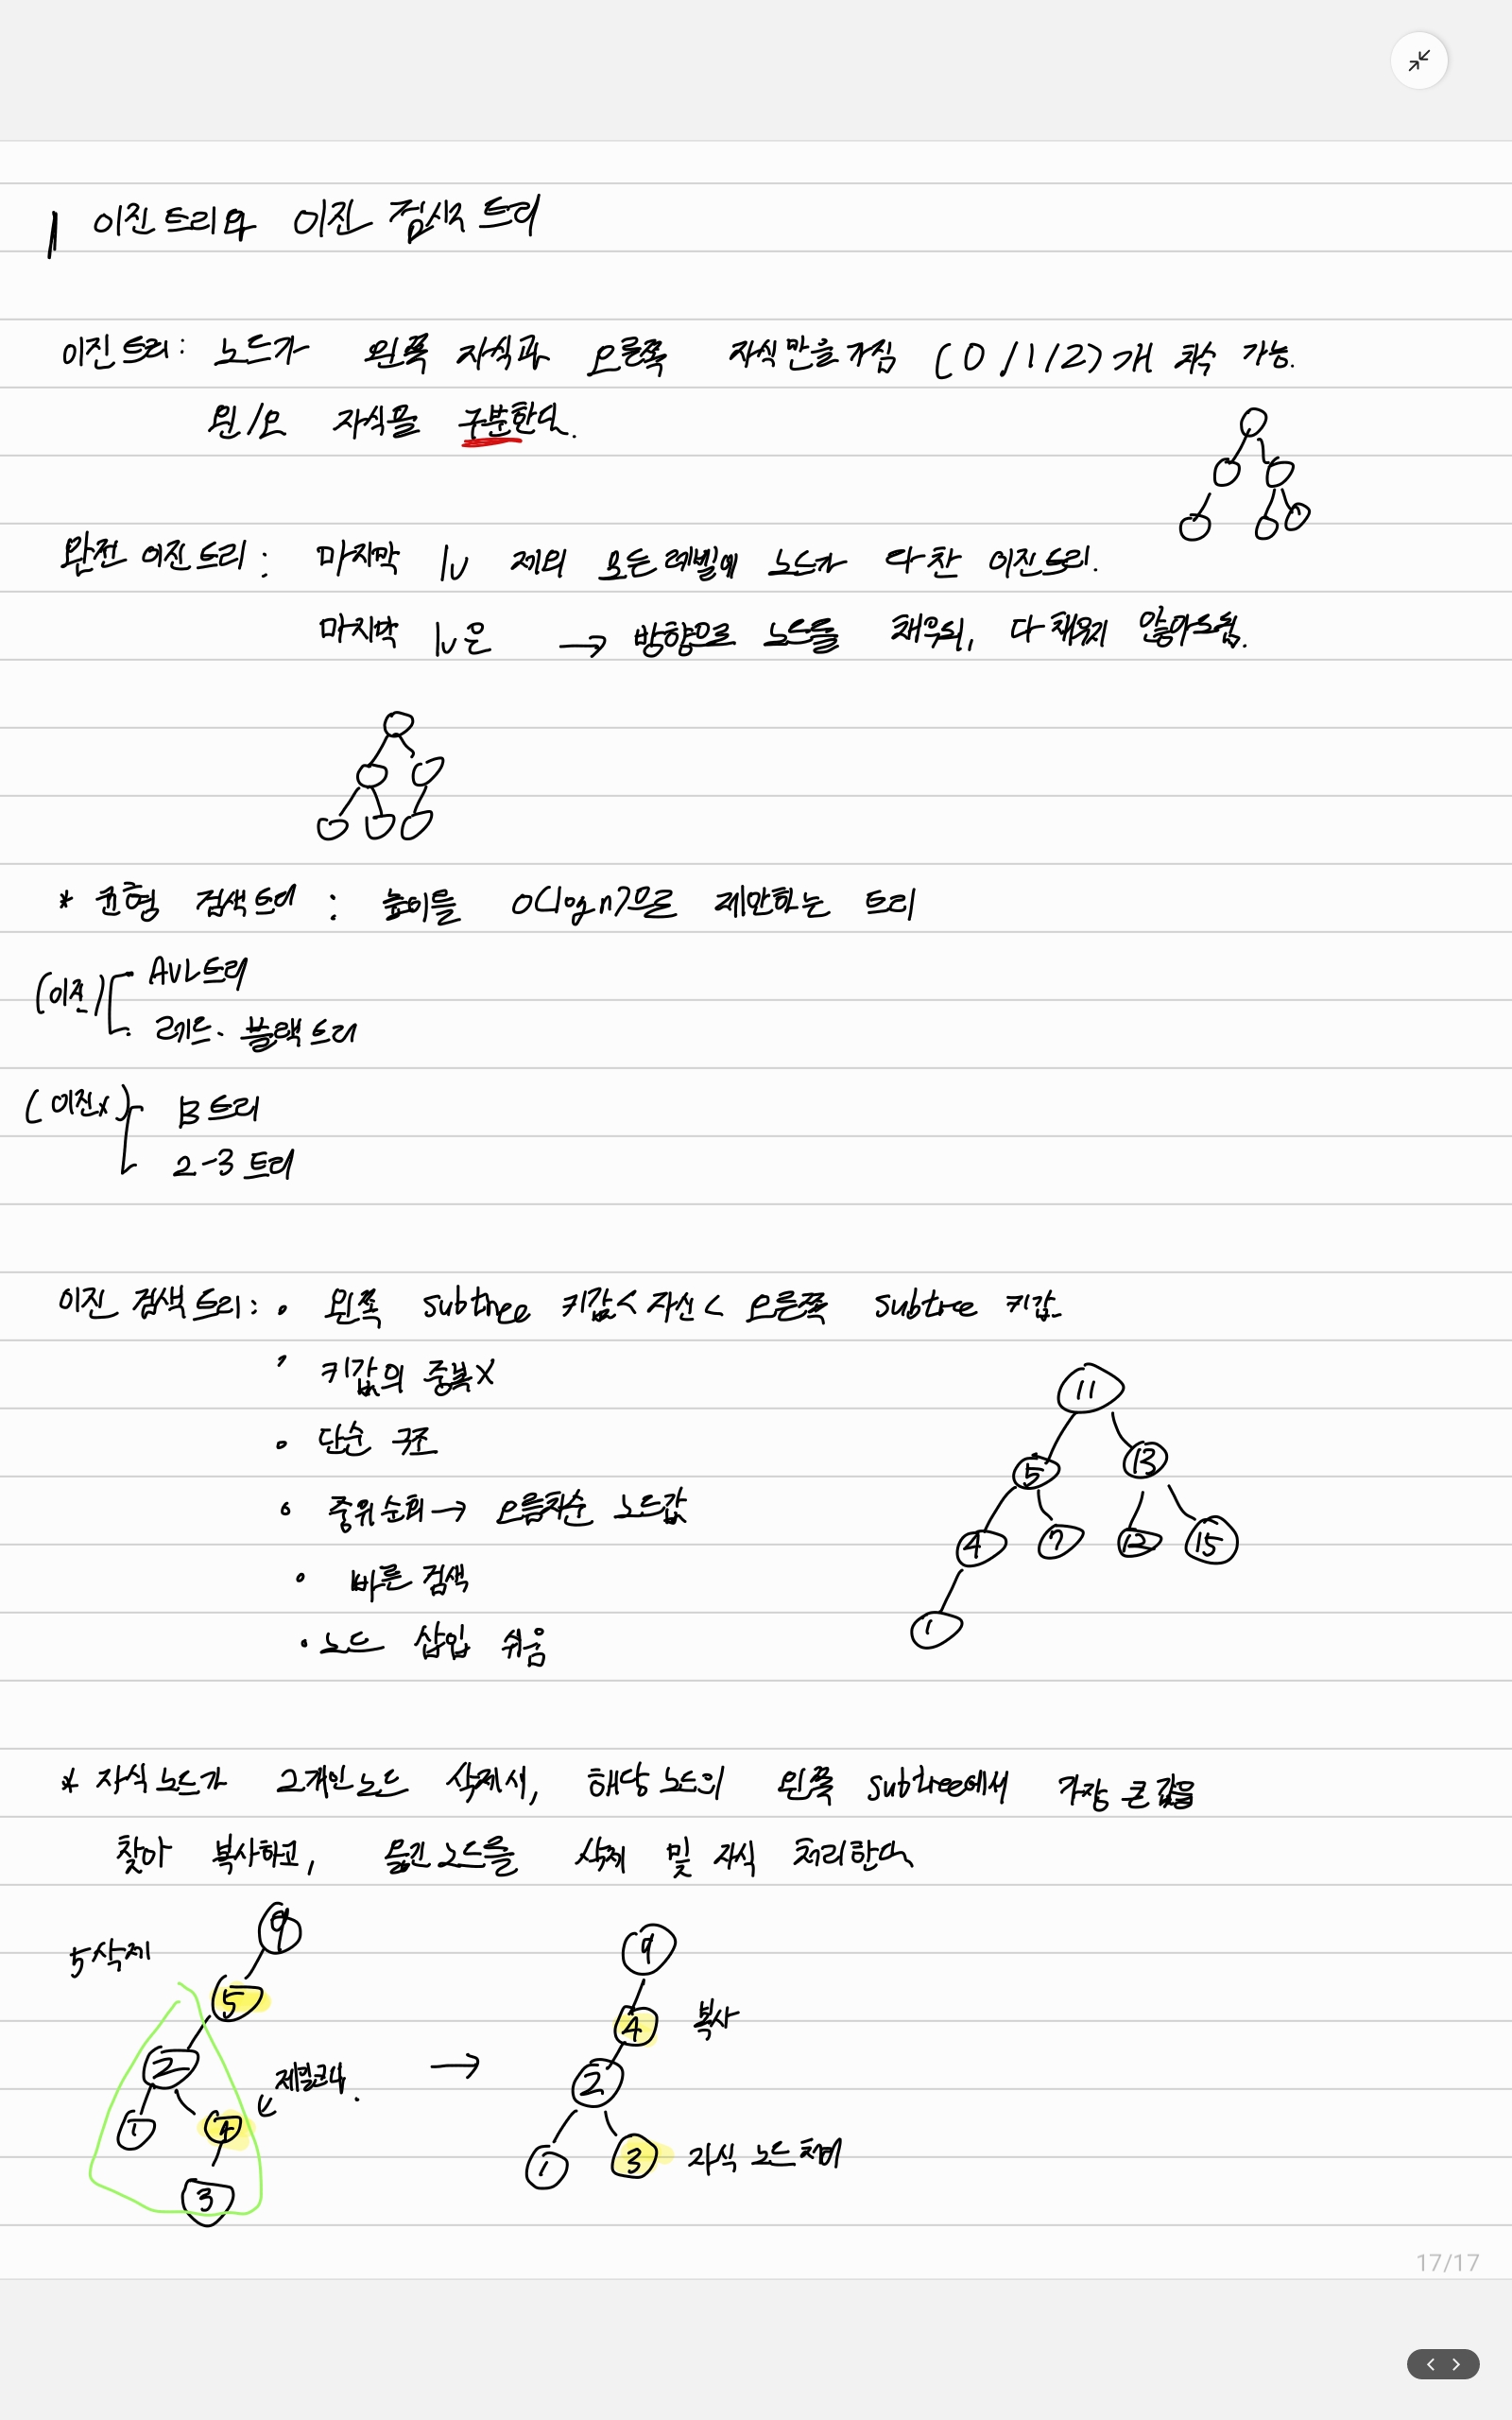 이진트리와 이진 검색 트리
이진트리: 노드가 왼쪽 자식과 오른쪽 자식만을 가짐 (0/1/2)개 자식 가능.
왼/오 자식을 구분한다.
완전 이진트리: 마지막 lv 제외 모든레벨에 노드가 다 찬 이진트리.
마지막 lv은 → 방향으로 노드를 채우되, 다 채우지 않아도됨.
* 균형 검색트리 : 높이를 O(logn)으로 제한하는 트리
(이진) AVL트리
레드·블랙트리
(이진x) B트리
2-3 트리
이진 검색트리: 왼쪽 subtree 키값 < 자신 < 오른쪽 subtree 키값
키값의 중복X
단순 구조
중위순회→ 오름차순 노드값
빠른 검색
노드 삽입 쉬움
11
5 13
4 7 12 15
1
* 자식노드가 2개인노드 삭제시, 해당노드의 왼쪽 subtree에서 가장 큰 값을
찾아 복사하고, 옮긴노드를 삭제 및 자식 처리한다
5삭제
9
5
2
제일크다.
1 4
3
→
9
4 복사
2
1 3 자식 노드 처리
17/17